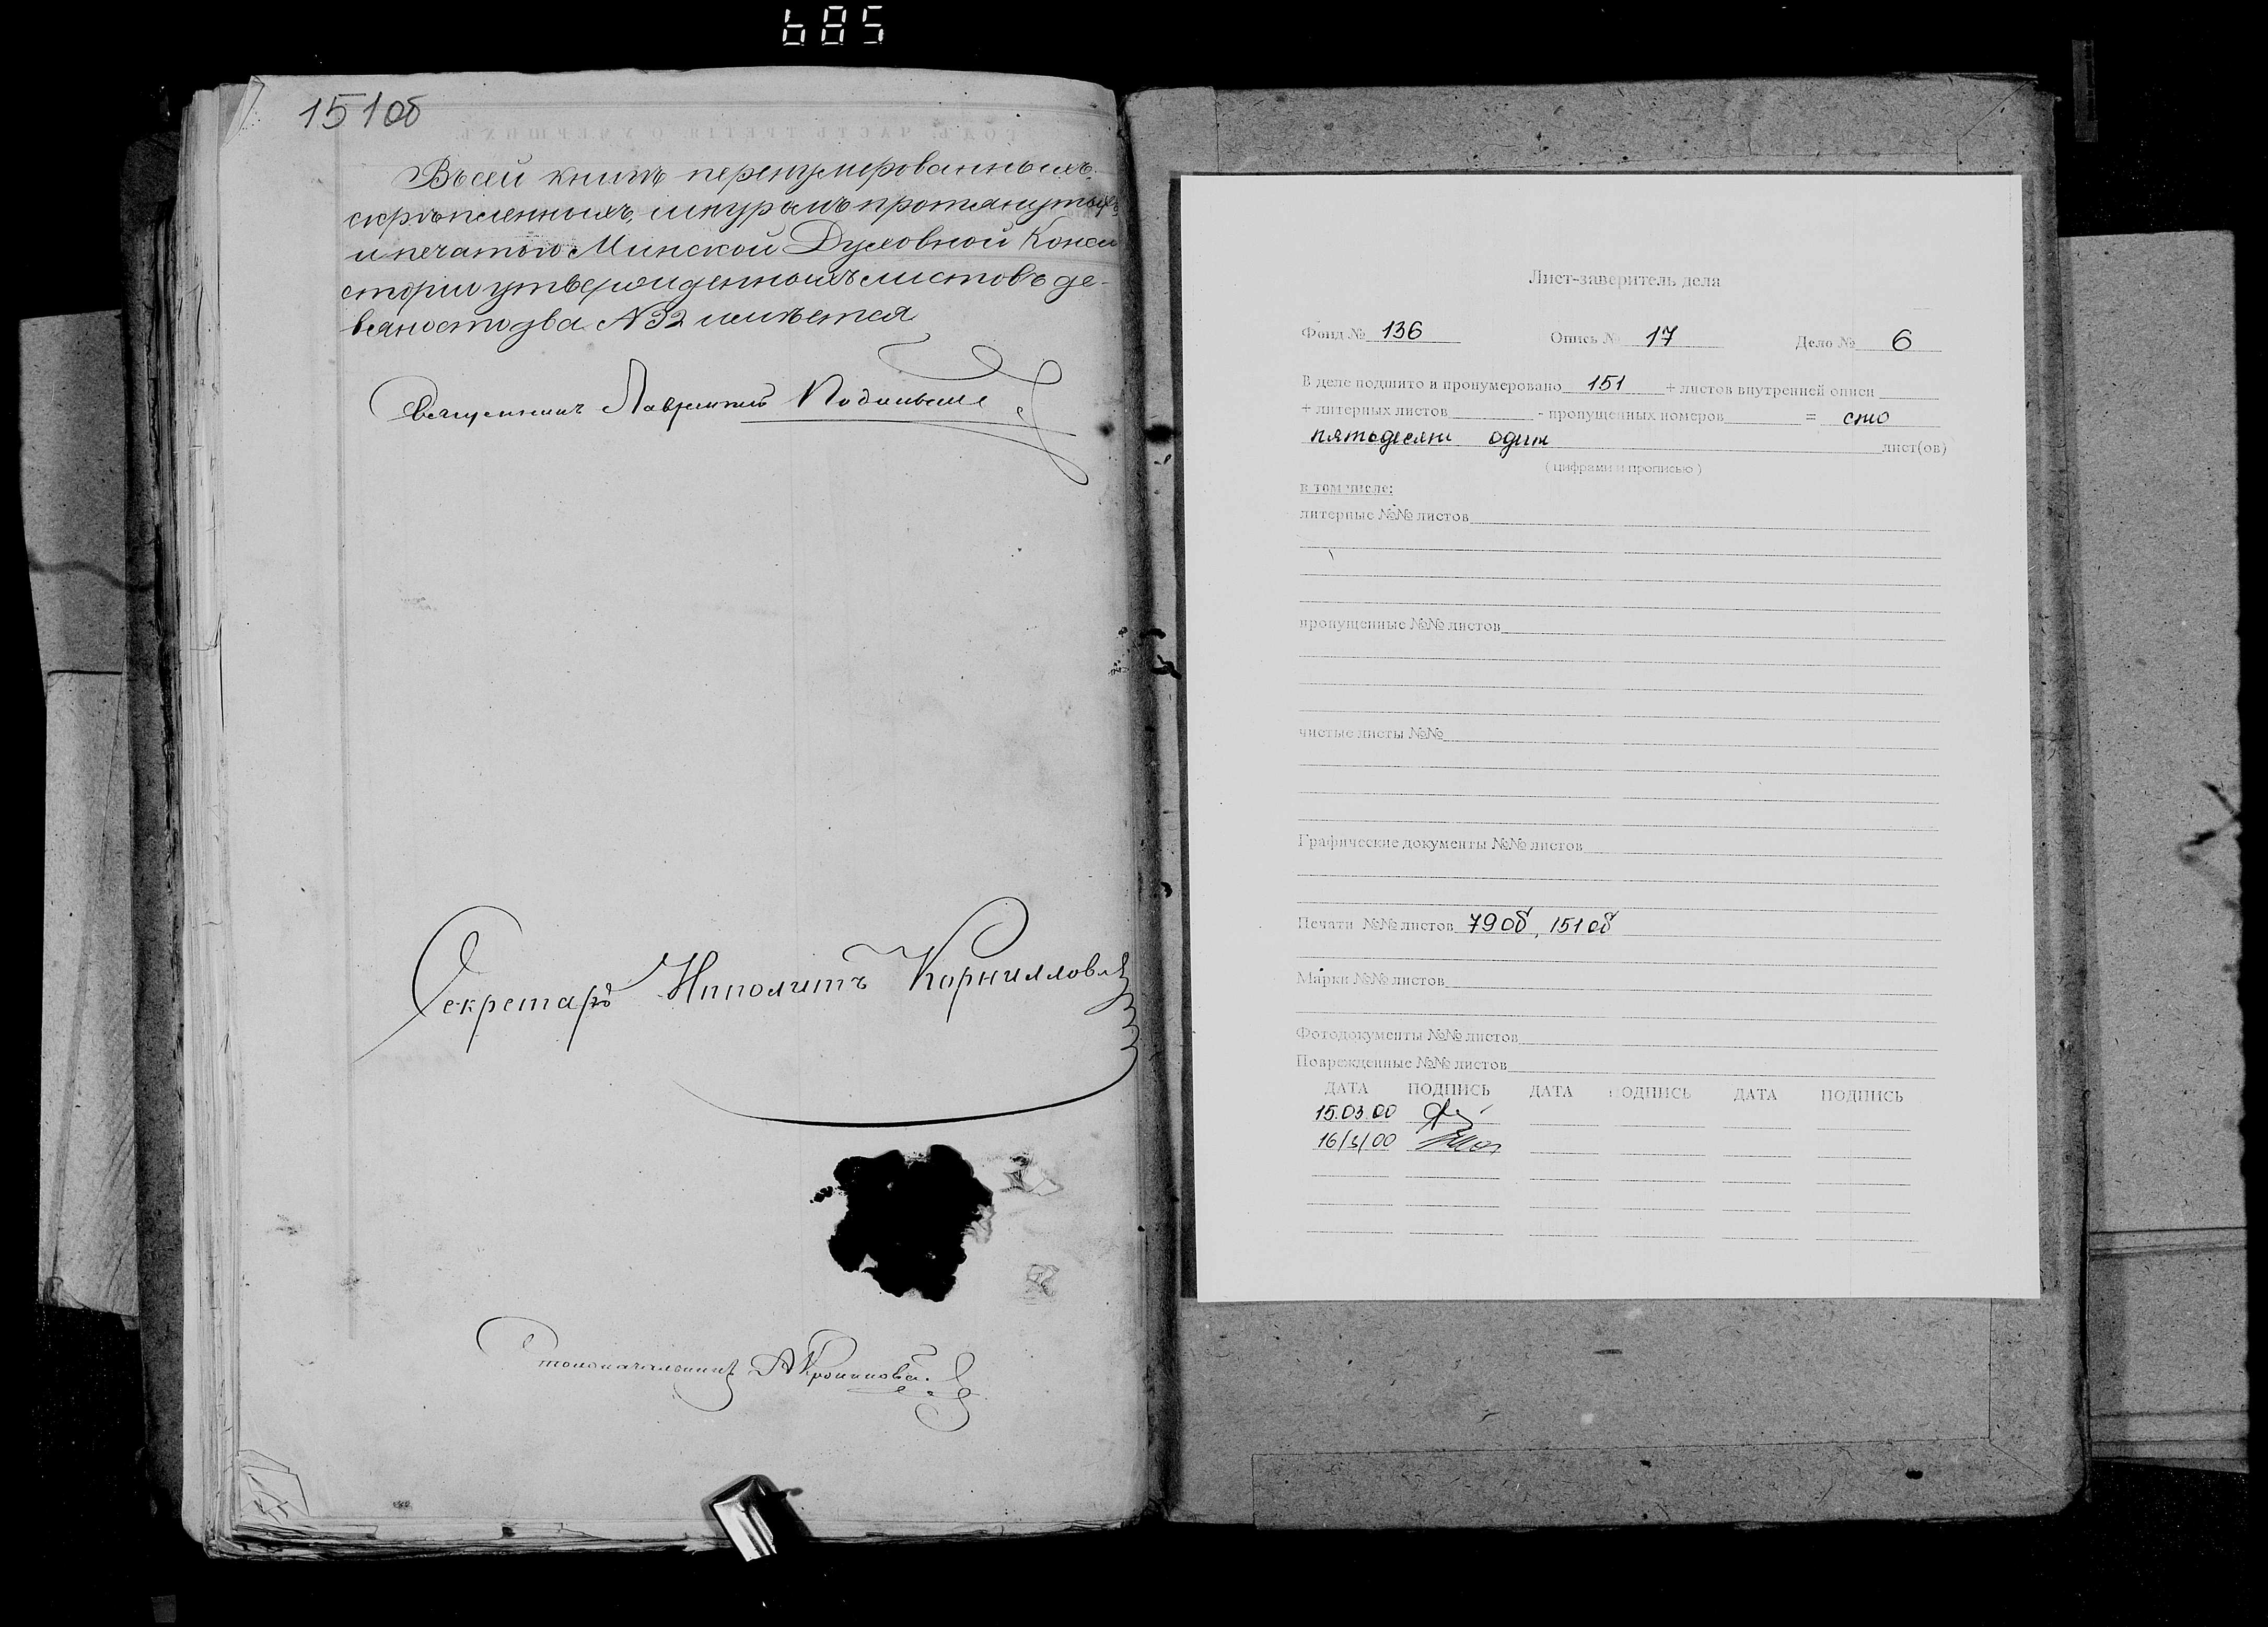 685
151об
Въ сей книгѣ перенумерованныхъ,
скрѣпленныхъ, шнуромъ протянутыхъ
и печатью Минской Духовной Конси
сторіи утвержденныхъ листовъ де-
вяносто два N 92 имѣется
Священникъ Лаврентій
Секретарь Ипполитъ Корниллов
Столоначальникъ
Лист-заверитель дела
Фонд № 136 Опись № 17 Дело № 6
В деле подшито и пронумеровано 151 + листов внутренней описи
+ литерных листов - пропущенных номеров = сто
пятьдесят один лист(ов)
( цифрами и прописью )
в том числе:
литерные №№ листов
пропущенные №№ листов
чистые листы №№
Графические документы №№ листов
Печати №№ листов 79об, 151об
Марки №№ листов
Фотодокументы №№ листов
Поврежденные №№ листов
ДАТА ПОДПИСЬ ДАТА ПОДПИСЬ ДАТА ПОДПИСЬ
15.03.00
16/3/00